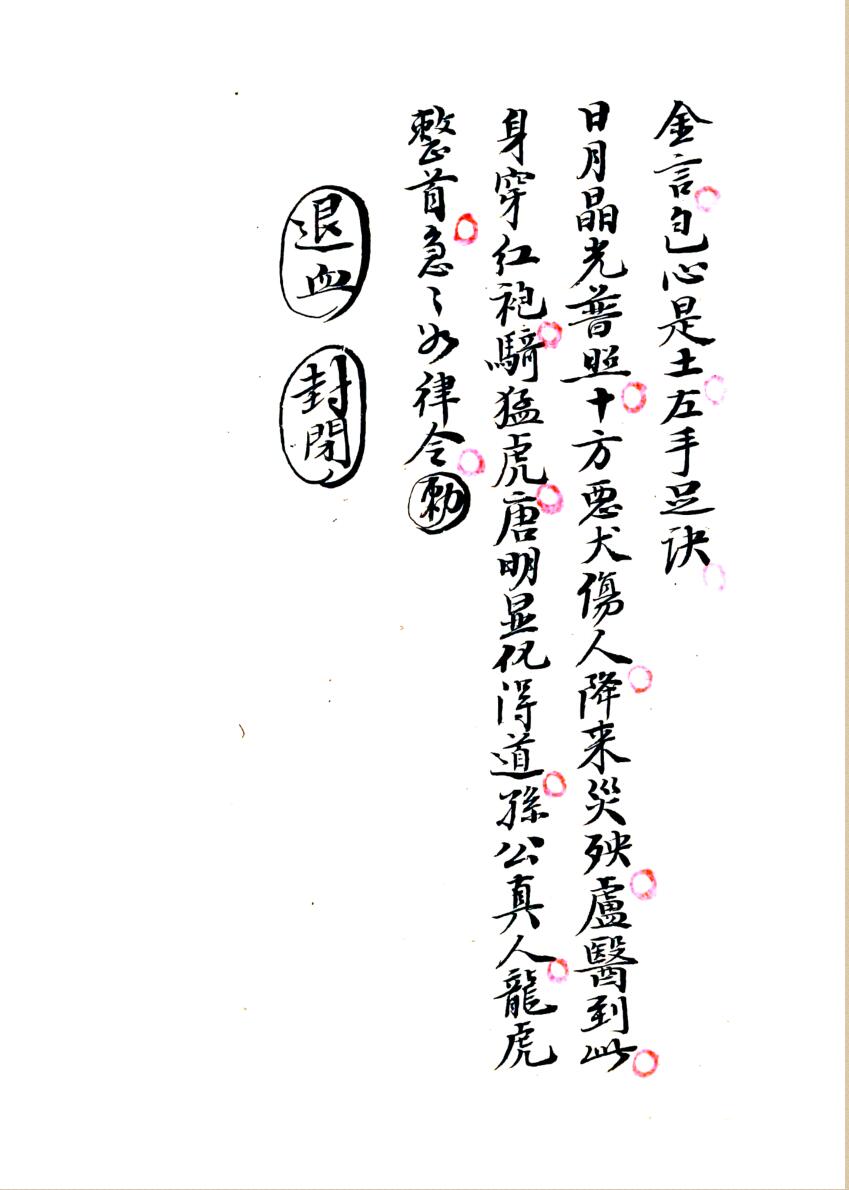 金言包心是土左手足訣
日月晶光普照十方惡犬傷人降来災殃盧醫到此
身穿紅袍騎猛虎唐明显化得道孫公真人龍虎
整首急々如律令勅
退血 封閉